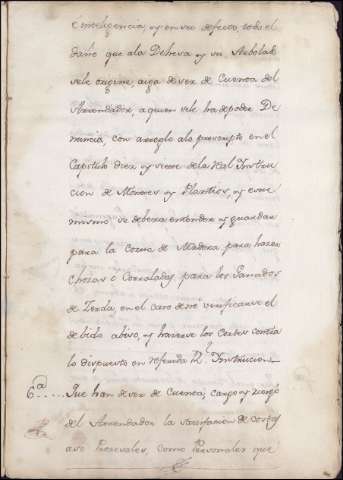 e inteligencia, y en su defecto todo el
daño que ala Dehesa y su Arbolado
sele origine, aiga de ser de Cuenta del
Arrendador, a quien sele ha de poder De
nunciar, con arreglo alo prevenido en el
Capitulo diez y nueve dela Real Instruc
cion de Montes y Plantios, y esto
mismo se debera entender y guardar
para la Corta de Madera para hacer
chozas o Corraladas para los Ganados
de Zerda, en el caso de no verificarse el
debido abiso, y hacerse los Cortes contra
lo dispuesto en referida Rl. Instruccion
6a.... Que han de ser de Cuenta, cargo y riesgo
del Arrendador la satisfacion de costas
asi Procesales, como Personales que